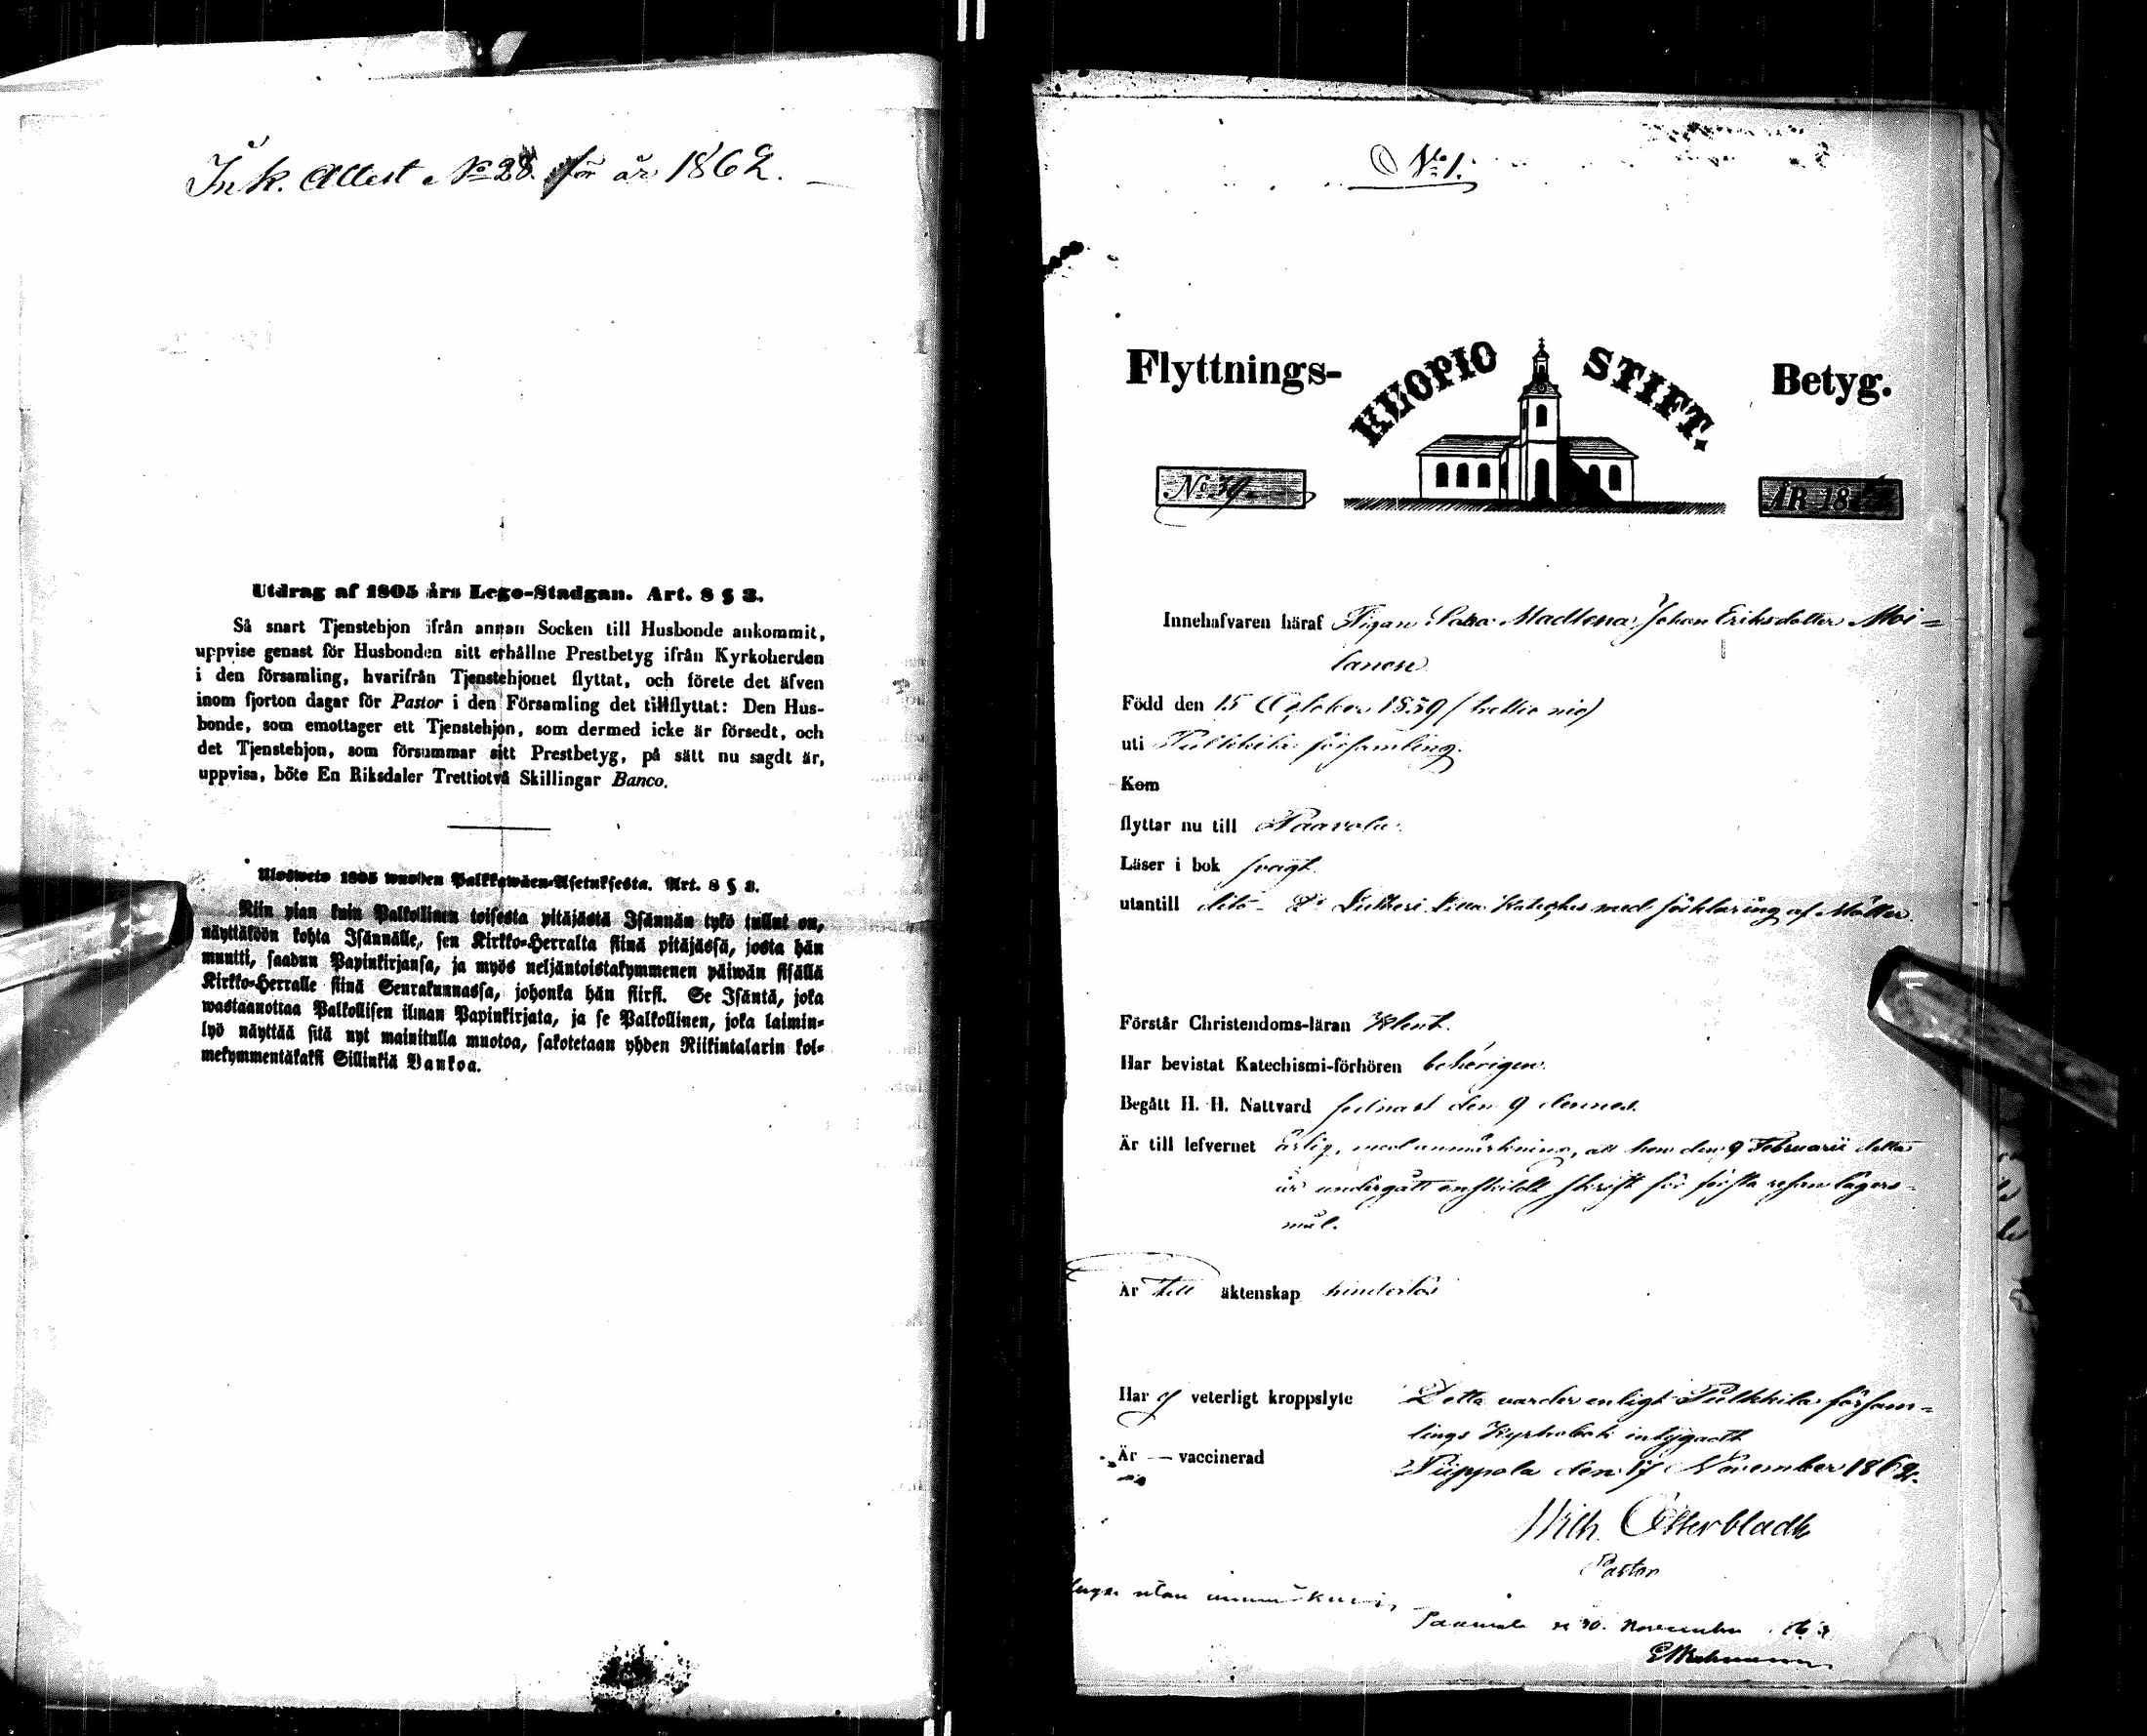 Ink. Attest No 28. för år 1862.
Utdrag af 1805 års Lego-Stadgan. Art. 8 § 3.
Så snart Tjenstehjon ifrån annan Socken till Husbonde ankommit,
uppvise genast för Husbonden sitt erhållne Prestbetyg ifrån Kyrkoherden
i den församling, hvarifrån Tjenstehjonet flyttat, och förete det äfven
inom fjorton dagar för Pastor i den Församling det tillflyttat: Den Hus-
bonde, som emottager ett Tjenstehjon, som dermed icke är försedt, och
det Tjenstehjon, som försummar sitt Prestbetyg, på sätt nu sagdt är,
uppvisa, böte En Riksdaler Trettiotvå Skillingar Banco.
Uloswето 1805 wuoden Palkkawäen-Asetuksesta. Art. 8 § 3.
Niin pian kuin Palkollinen toisesta pitäjästä Isännän tykö tullut on,
näyttäköön kohta Isännälle, sen Kirkko-Herralta siinä pitäjässä, josta hän
muutti, saadun Papinkirjansa, ja myös neljäntoistakymmenen päiwän sisällä
Kirkko-Herralle siinä Seurakunnassa, johonka hän siirsi. Se Isäntä, joka
wastaanottaa Palkollisen ilman Papinkirjata, ja se Palkollinen, joka laimin-
lyö näyttää sitä nyt mainitulla muotoa, sakotetaan yhden Riikintalarin kol-
mekymmentäkaksi Sillinkiä Bankoa.
No 1.
Flyttnings- KUOPIO STIFT. Betyg.
No 39. ÅR 18
Innehafvaren häraf Pigan Sara Madlena Johan Eriksdotter Moi-
lanen
Född den 15 October 1839 (trettio nio)
uti Pulkkila församling.
Kom
flyttar nu till Paavola.
Läser i bok svagt
utantill dito Dr Lutheri lilla Kateches med förklaring af Möller.
Förstår Christendoms-läran klent.
Har bevistat Katechismi-förhören behörigen.
Begått H. H. Nattvard sednast den 9 dennes.
Är till lefvernet ärlig, med anmärkning, att hon den 9 Februarii detta
år undergått enskildt skrift för första resan lägers-
mål.
Är till äktenskap hinderlös
Har ej veterligt kroppslyte Detta varder enligt Pulkkila försam-
lings Kyrkobok intygadt
Är — vaccinerad Piippola den 17 November 1862.
Wilh. Österbladh
Pastor
utan anmärkning
Paavola 30. November